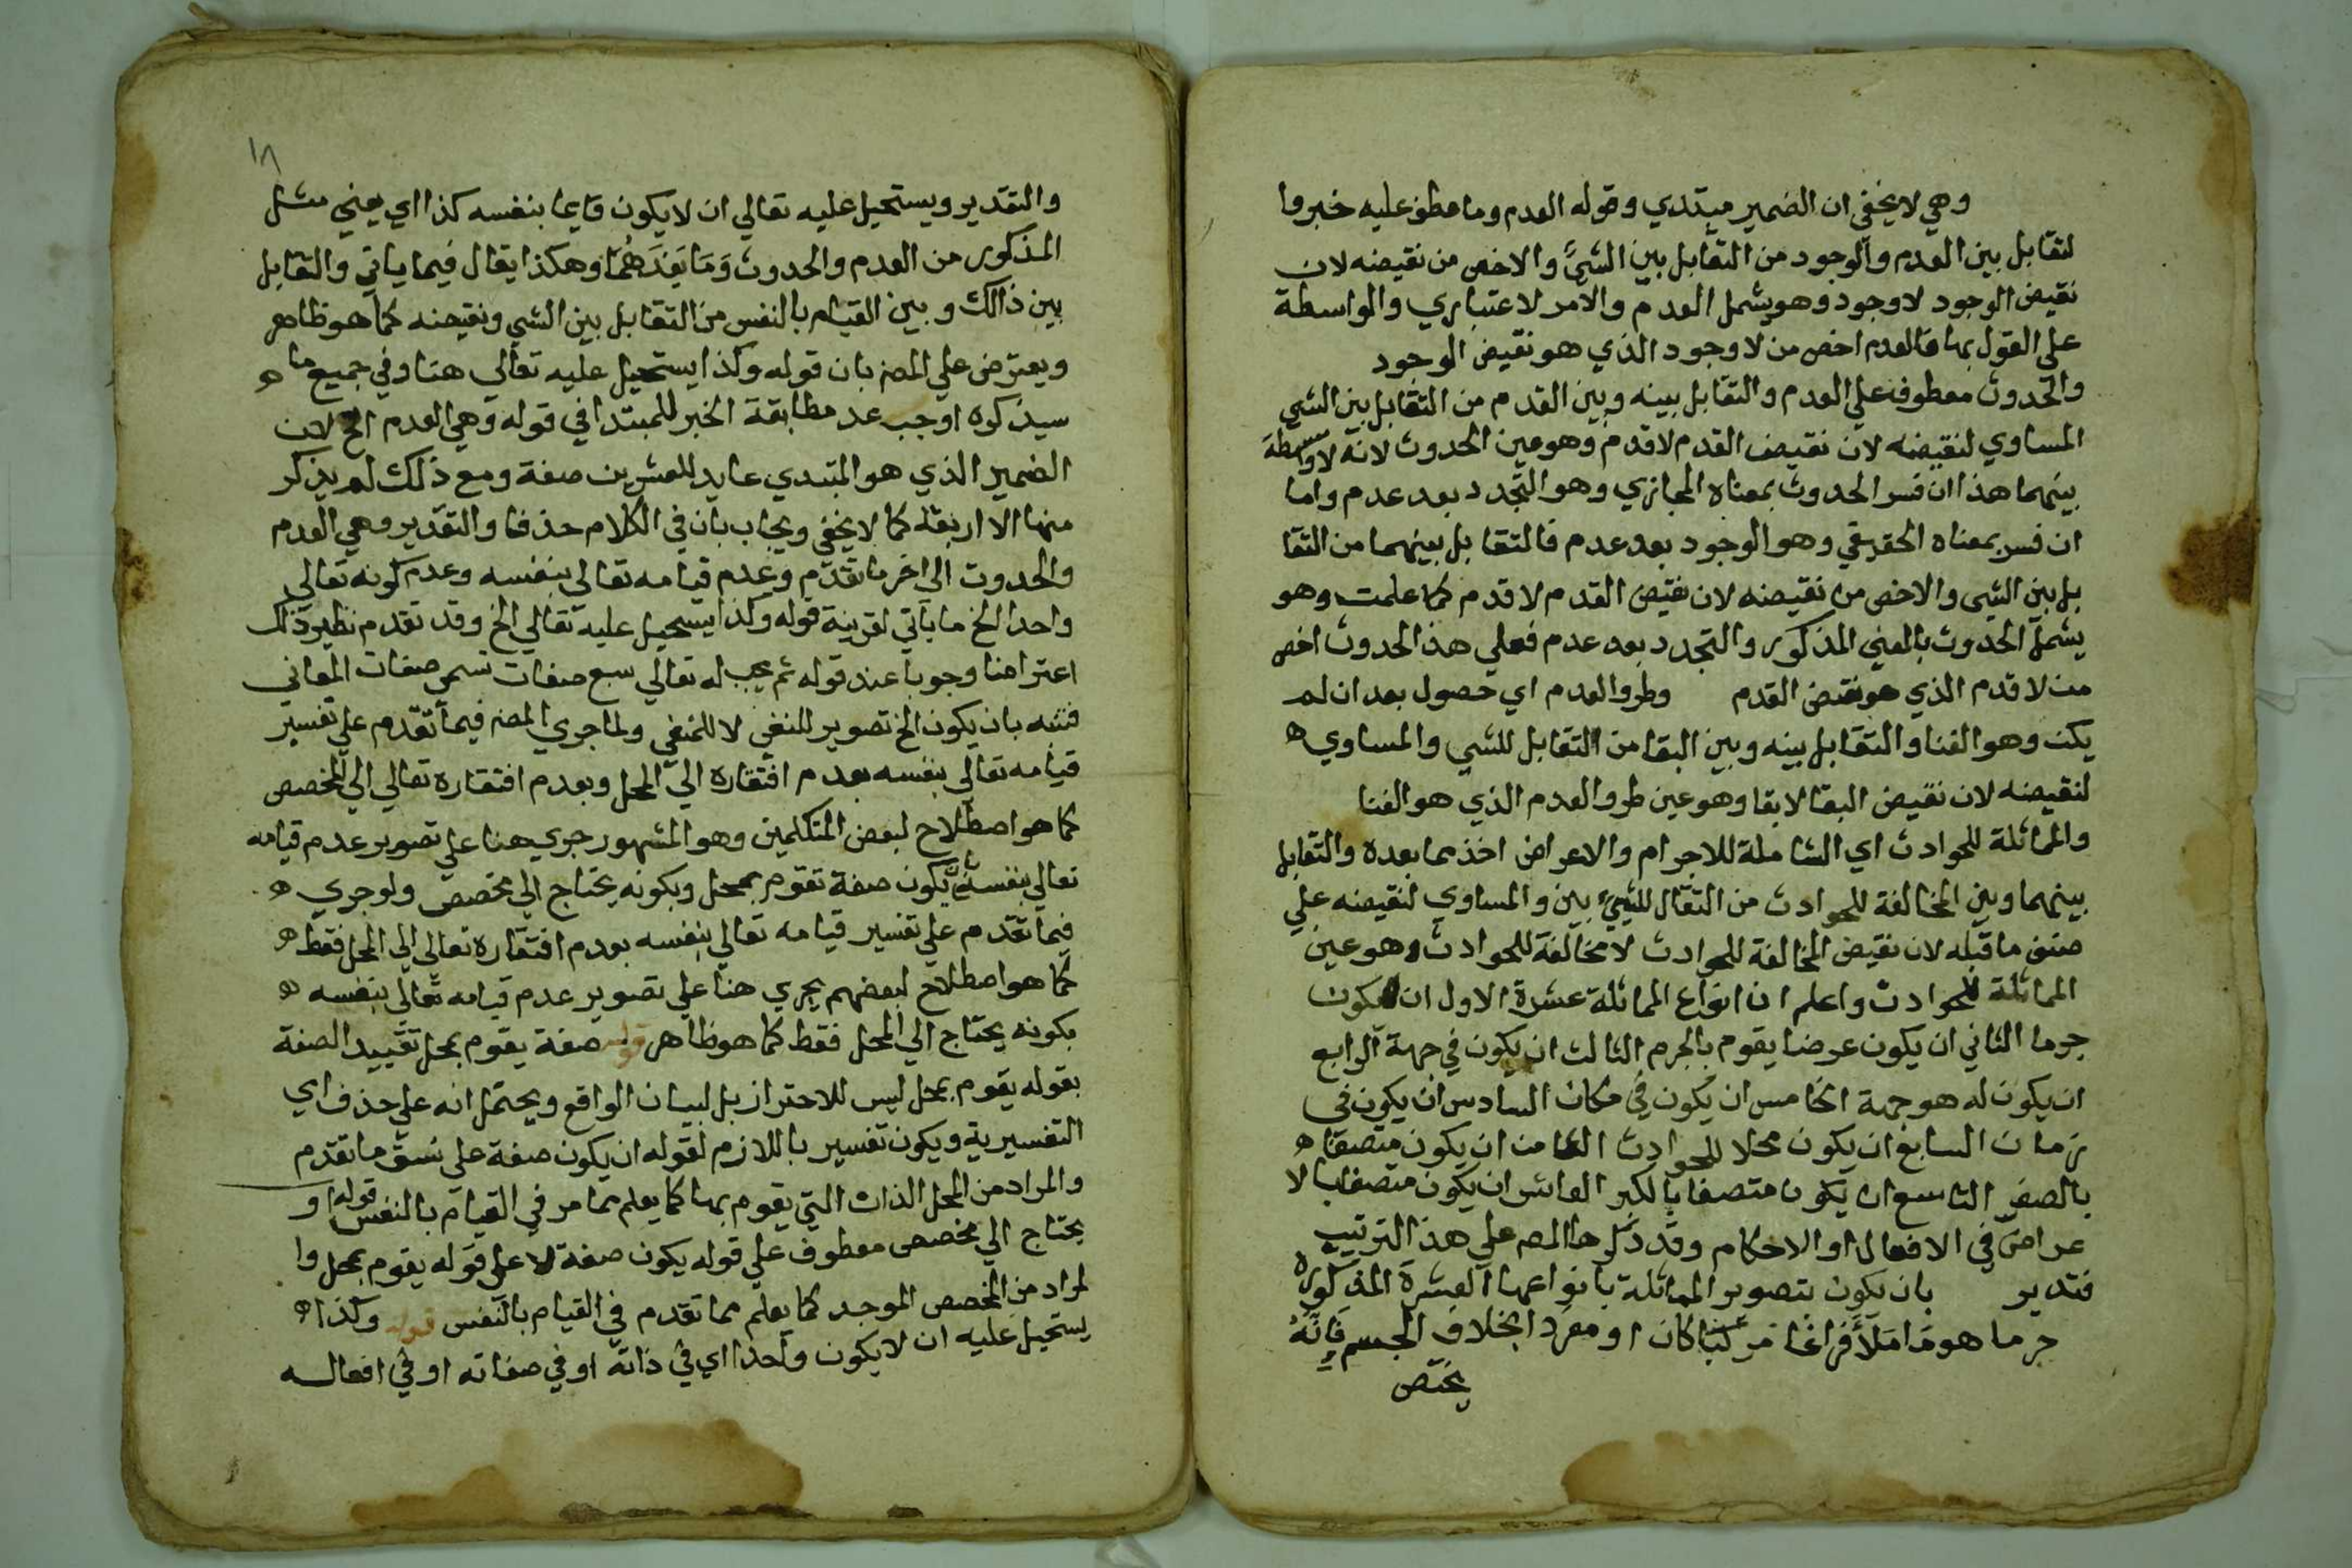 وهي لا يخفي ان الضمير مبتدي وقوله العدم وما عطف عليه خبر وا
لتقابل بين العدم والوجود من التقابل بين الشيء والاخص من نقيضه لان
نقيض الوجود لا وجود وهو يشمل العدم والامر لاعتباري والواسطة
على القول بها فالعدم اخص من لا وجود الذي هو نقيض الوجود
والحدوث معطوف علي العدم والتقابل بينه وبين القدم من التقابل بين الشي
المساوي لنقيضه لان نقيض القدم لا قدم وهو عين الحدوث لانه لا واسطة
بينهما هذا ان فسر الحدوث بمعناه المجازي وهو التجدد بعد عدم واما
ان فسر بمعناه الحقيقي وهو الوجود بعد عدم فالتقابل بينهما من التقا
بل بين الشي والاخص من نقيضه لان نقيض القدم لا قدم كما علمت وهو
يشمل الحدوث بالمعني المذكور والتجدد بعد عدم فعلي هذا الحدوث اخص
من لا قدم الذي هو نقيض القدم وطرو العدم اي حصول بعد ان لم
يكن وهو الفنا والتقابل بينه وبين البقا من التقابل للشي والمساوي ه
لنقيضه لان نقيض البقا لا بقا وهو عين طرو العدم الذي هو الفنا
والمماثلة للحوادث اي الشاملة للاجرام والاعراض اخذ مما بعده والتقابل
بينهما وبين المخالفة للحوادث من التقال للشيء بين والمساوي لنقيضه علي
صنف ما قبله لان نقيض المخالفة للحوادث لا مخالفة للحوادث وهو عين
المماثلة للحوادث واعلم ان انواع المماثلة عشرة الاول ان يكون
جرما الثاني ان يكون عرضا يقوم بالجرم الثالث ان يكون في جهة الرابع
ان يكون له هو جهة الخامس ان يكون في مكان السادس ان يكون في
زمان السابع ان يكون محلا للحوادث الثامن ان يكون متصفا ه
بالصغر التاسع ان يكون متصفا بالكبر العاشر ان يكون متصفا با لا
عراض في الافعال او الاحكام وقد ذكرها المص علي هذ الترتيب
فتدبر بان يكون تصوير المماثلة بانواعها العشرة المذكورة
جرما هو ما ملأ فراغا مركبا كان او مفردا بخلاف الجسم فإنه
يختص
١٨
والتقدير ويستحيل عليه تعالي ان لا يكون قايما بنفسه كذا اي يعني مثل
المذكور من العدم والحدوث وما بعدهما وهكذا يقال فيما ياتي والتقابل
بين ذالك وبين القيام بالنفس من التقابل بين الشي ونقيضه كما هو ظاهر
ويعترض علي المصنف بان قوله وكذا يستحيل عليه تعالي هنا وفي جميع ما ه
سيذكره اوجب عدم مطابقة الخبر للمبتدا في قوله وهي العدم الخ لان
الضمير الذي هو المبتدي عايد للعشرين صفة ومع ذلك لم يذكر
منها الا اربعة كما لا يخفي ويجاب بان في الكلام حذفا والتقدير وهي العدم
والحدوث الي اخر ما تقدم وعدم قيامه تعالي بنفسه وعدم كونه تعالي
واحدا الخ ما ياتي لقرينة قوله وكذا يستحيل عليه تعالي الخ وقد تقدم نظير ذلك
اعتراضا وجوبا عند قوله ثم يجب له تعالي سبع صفات تسمى صفات المعاني
فتنبه بان يكون الخ تصوير للنفي لا للمنفي ولما جري المص فيما تقدم علي تفسير
قيامه تعالي بنفسه بعدم افتقاره الي المحل وبعدم افتقاره تعالي الي المخصص
كما هو اصطلاح لبعض المتكلمين وهو المشهور جري هنا علي تصوير عدم قيامه
تعالي بنفسه يكون صفة تقوم بمحل وبكونه يحتاج الي مخصص ولو جري ه
فيما تقدم علي تفسير قيامه تعالي بنفسه بعدم افتقاره تعالي الي المحل فقط ه
كما هو اصطلاح لبعضهم يجري هنا علي تصوير عدم قيامه تعالي بنفسه ه
بكونه يحتاج الي المحل فقط كما هو ظاهر قوله صفة يقوم بمحل تقييد الصفة
بقوله يقوم بمحل ليس للاحتراز بل لبيان الواقع ويحتمل انه علي حذف اي
التفسيرية ويكون تفسير باللازم لقوله ان يكون صفة علي نسق ما تقدم
والمراد من المحل الذات التي يقوم بها كما يعلم مما مر في القيام بالنفس قوله او
يحتاج الي مخصص معطوف علي قوله يكون صفة لا علي قوله يقوم بمحل وا
لمراد من المخصص الموجد كما يعلم مما تقدم في القيام بالنفس قوله وكذا ه
يستحيل عليه ان لا يكون واحدا اي في ذاته او في صفاته او في افعاله